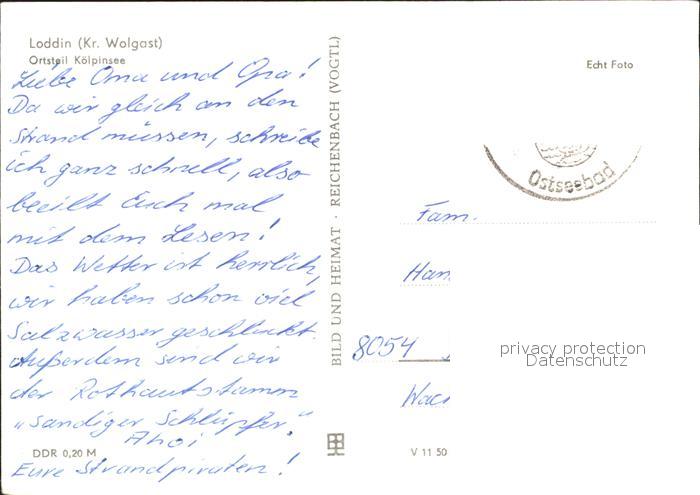 Loddin (Kr. Wolgast)
Ortsteil Kölpinsee
Liebe Oma und Opa!
Da wir gleich an den
Strand müssen, schreibe
ich ganz schnell, also
beeilt Euch mal
mit dem Lesen!
Das Wetter ist herrlich,
wir haben schon viel
Salzwasser geschluckt.
Außerdem sind wir
der Rothautstamm
„Sandiger Schlüpfer."
Ahoi
Eure Strandpiraten!
DDR 0,20 M
BILD UND HEIMAT · REICHENBACH (VOGTL)
V 11 50
Echt Foto
Ostseebad
Fam.
Han
8054
Wac
privacy protection
Datenschutz